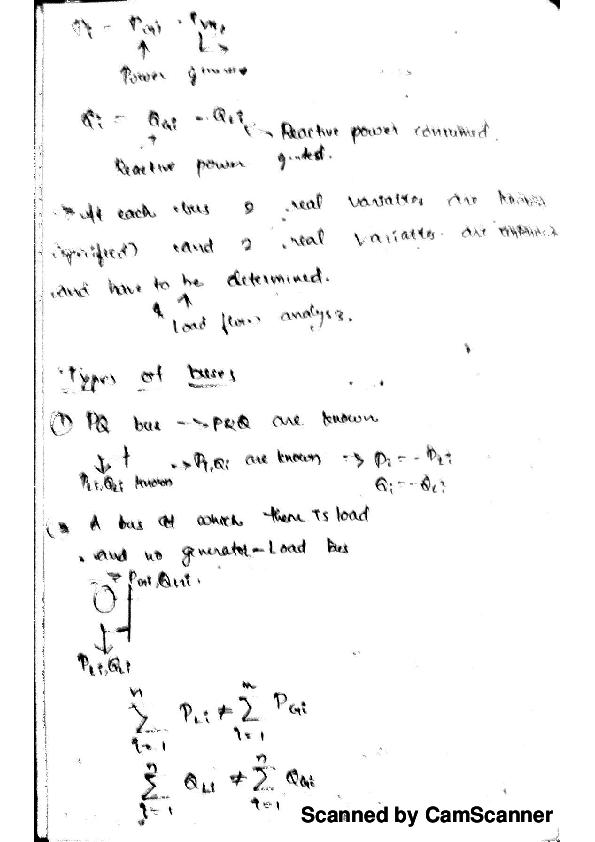 Pi = PGi -
Power
Qi = QGi - QLi Reactive power consumed.
Reactive power
At each bus 2 real variables are known
(specified) and 2 real variables are
and have to be determined.
Load flow analysis.
Types of buses
① PQ bus --> P&Q are known
PLi, QLi known --> Pi, Qi are known => Pi = -PLi
Qi = -QLi
A bus at which there is load
and no generator - Load Bus
PGi, QGi.
PLi, QLi
n ∑ i=1 PLi ≠ n ∑ i=1 PGi
n ∑ i=1 QLi ≠ n ∑ i=1 QGi
Scanned by CamScanner